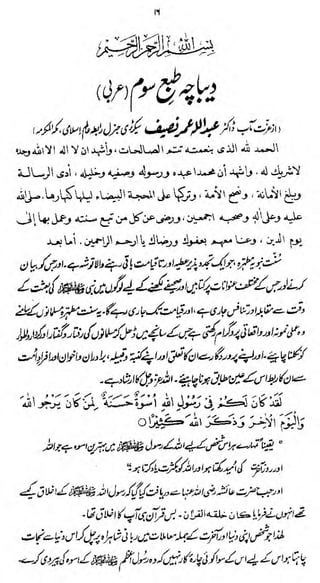 ۱۶
بسم الله الرحمن الرحيم
دیباچہ طبع سوم (عربی)
(از عزت مآب ڈاکٹر عبداللہ عمر نصیف سیکرٹری جنرل رابطہ عالم اسلامی، مکۃ المکرمہ)
الحمد لله الذى بنعمته تتم الصالحات، وأشهد ان لا اله الا الله وحده
لا شريك له، واشهد أن محمدا عبده ورسوله وصفيه وخليله، أدى الرسالة
وبلغ الأمانة، ونصح الأمة، وتركها على المحجة البيضاء ليلها كنهارها. صلى الله
عليه وعلى أله وصحبه أجمعين، ورضى عن كل من تبع سنته وعمل بها إلى
يوم الدين، وعنا معهم بعفوك ورضاك يا ارحم الراحمين. أما بعد
سنت نبویہ مطہرہ، جو ایک تجدد پذیر عطیہ اور تا قیامت باقی رہنے والا توشہ ہے۔ اور جس کو بیان
کرنے اور جس کے مختلف عنوانات پر کتابیں اور صحیفے لکھنے کے لیے لوگوں میں نبی ﷺ کی بعثت کے
وقت سے مقابلہ اور تنافس جاری ہے۔ اور قیامت تک جاری رہے گا۔ سنت مطہرہ مسلمانوں کے سامنے
وہ عملی نمونہ اور واقعاتی پروگرام رکھتی ہے جس کے سانچے میں ڈھل کر مسلمانوں کی رفتار و گفتار اور کردار و اطوار
کو نکلنا چاہیئے۔ اور اپنے پروردگار سے ان کا تعلق اور اپنے کنبہ و قبیلہ، برادران و اخوان اور افراد امت
سے ان کا ربط اس کے عین مطابق ہونا چاہیئے۔ اللہ عزوجل کا ارشاد ہے۔
لَقَدْ كَانَ لَكُمْ فِي رَسُولِ اللهِ أُسْوَةٌ حَسَنَةٌ لِمَنْ كَانَ يَرْجُو اللهَ
وَالْيَوْمَ الْآخِرَ وَذَكَرَ اللهَ كَثِيرًا ○
"یقیناً تمہارے ہر اس شخص کے لیے اللہ کے رسول ﷺ میں بہترین اسوہ ہے جو اللہ
اور روز آخرت کی امید رکھتا ہو اور اللہ کو بکثرت یاد کرتا ہو۔"
اور جب حضرت عائشہ رضی اللہ عنہا سے دریافت کیا گیا کہ رسول اللہ ﷺ کے اخلاق کیسے
تھے تو انہوں نے فرمایا کان خلقه القرآن۔ بس قرآن ہی آپ کا اخلاق تھا۔
لہٰذا جو شخص اپنی دنیا اور آخرت کے جملہ معاملات میں ربانی شاہراہ پر چل کر اس دنیا سے نجات
چاہتا ہو اس کے لیے اس کے سوا کوئی چارۂ کار نہیں کہ وہ رسول اعظم ﷺ کے اسوہ کی پیروی کرے۔